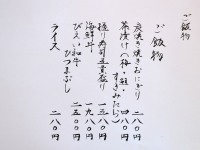 ご飯物
ご飯物
炭焼き焼きおにぎり 一八〇円
茶漬け(梅・鮭・すきみたらし) 四八〇円
握り寿司五貫盛り 一一八〇円
海鮮丼 一九八〇円
びえい和牛ひつまむし 二五〇〇円
ライス 二八〇円